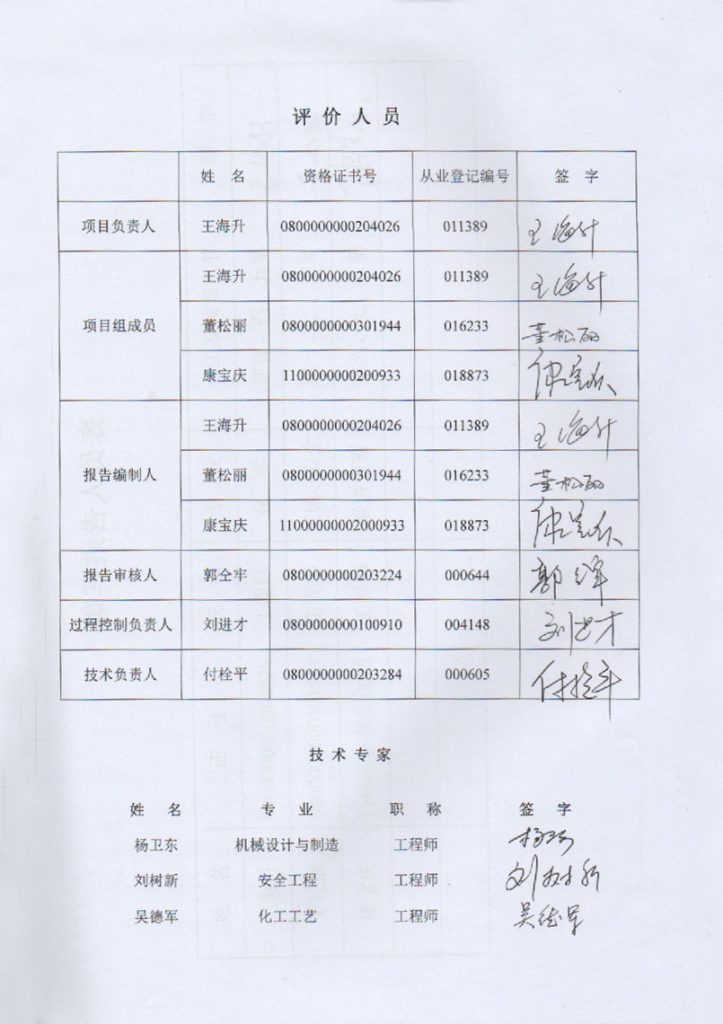 评价人员
姓 名 资格证书号 从业登记编号 签 字
项目负责人 王海升 0800000000204026 011389 王海升
项目组成员 王海升 0800000000204026 011389 王海升
董松丽 0800000000301944 016233 董松丽
康宝庆 1100000000200933 018873 康宝庆
报告编制人 王海升 0800000000204026 011389 王海升
董松丽 0800000000301944 016233 董松丽
康宝庆 11000000002000933 018873 康宝庆
报告审核人 郭仝牢 0800000000203224 000644 郭仝牢
过程控制负责人 刘进才 0800000000100910 004148 刘进才
技术负责人 付栓平 0800000000203284 000605 付栓平
技术专家
姓 名 专 业 职 称 签 字
杨卫东 机械设计与制造 工程师
刘树新 安全工程 工程师 刘树新
吴德军 化工工艺 工程师 吴德军